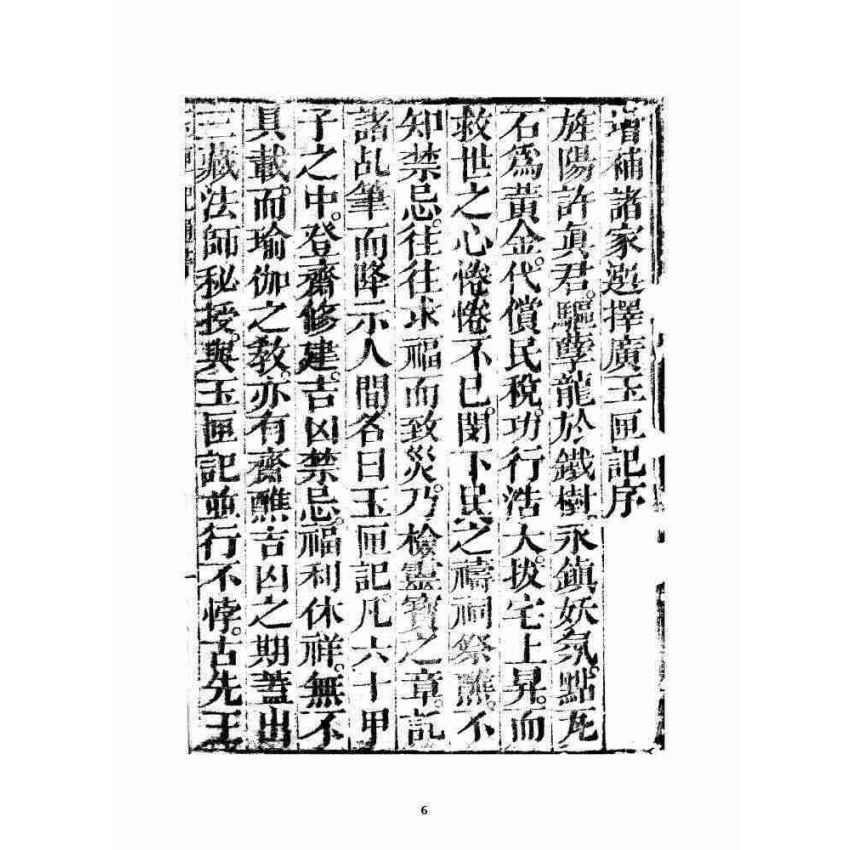 增補諸家選擇廣玉匣記序
旌陽許眞君。驅孽龍於鐵樹。永鎮妖氛。點瓦
石爲黃金。代償民稅。功行浩大。拔宅上昇。而
救世之心惓惓不已。閔下民之禱祠祭醮。不
知禁忌。往往求福而致災。乃檢靈寶之章。託
諸乩筆而降示人間。名曰玉匣記。凡六十甲
子之中。登齋修建。吉凶禁忌。福利休祥。無不
具載。而瑜伽之教。亦有齋醮吉凶之期。蓋出
三藏法師秘授。與玉匣記並行不悖。古先王
6